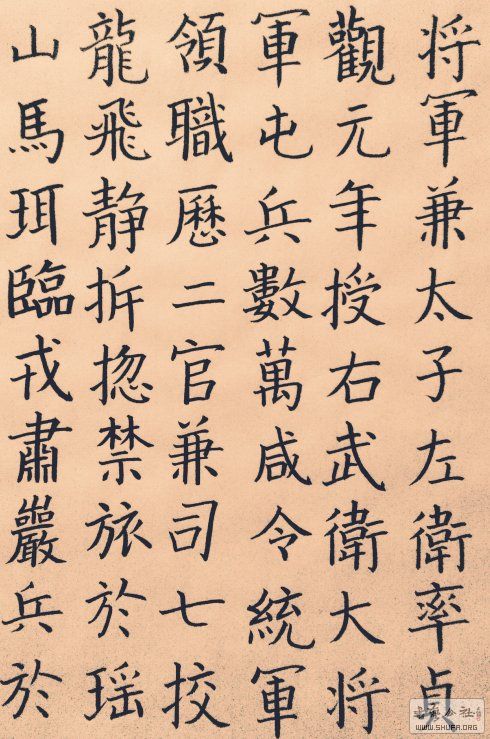 将軍兼太子左衛率貞
觀元年授右武衛大将
軍屯兵數萬咸令統軍
領職歷二官兼司七挍
龍飛静拆揔禁旅於瑶
山馬珥臨戎肅巖兵於
WWW.SHUFA.ORG